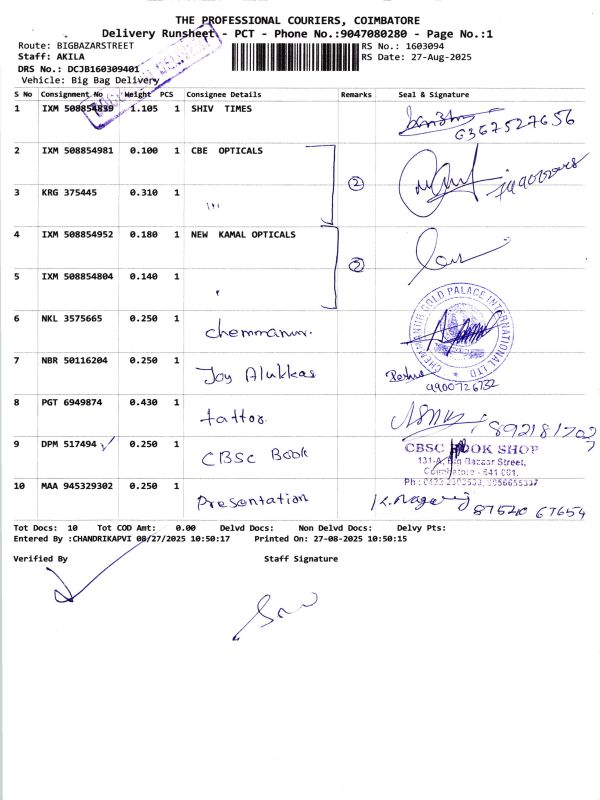 THE PROFESSIONAL COURIERS, COIMBATORE
Delivery Runsheet - PCT - Phone No.:9047080280 - Page No.:1
Route: BIGBAZARSTREET RS No.: 1603094
Staff: AKILA RS Date: 27-Aug-2025
DRS No.: DCJB160309401
Vehicle: Big Bag Delivery
S No Consignment No Weight PCS Consignee Details Remarks Seal & Signature
1 IXM 508854839 1.105 1 SHIV TIMES
6367527656
2 IXM 508854981 0.100 1 CBE OPTICALS
3 KRG 375445 0.310 1 ııı 2
4 IXM 508854952 0.180 1 NEW KAMAL OPTICALS
5 IXM 508854804 0.140 1 2
6 NKL 3575665 0.250 1 chemmanur.
CHEMMANUR GOLD PALACE INTERNATIONAL LTD
7 NBR 50116204 0.250 1 Joy Alukkas
9900726732
8 PGT 6949874 0.430 1 tattos.
9 DPM 517494 0.250 1 CBSC Book
CBSC BOOK SHOP
131-A, Big Bazaar Street,
Coimbatore - 641 001.
10 MAA 945329302 0.250 1 Presentation K.Nagaraj 87540 67654
Tot Docs: 10 Tot COD Amt: 0.00 Delvd Docs: Non Delvd Docs: Delvy Pts:
Entered By :CHANDRIKAPVI 08/27/2025 10:50:17 Printed On: 27-08-2025 10:50:15
Verified By Staff Signature